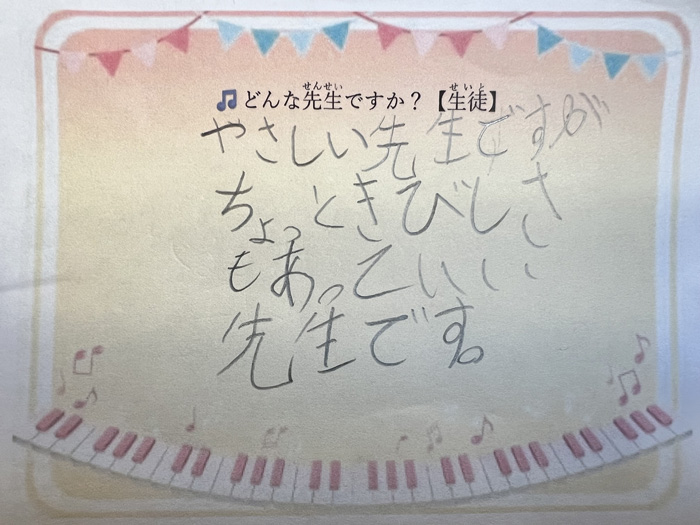 🎵どんな先生ですか？【生徒】
やさしい先生ですが
ちょっときびしさ
もあっていい
先生です。